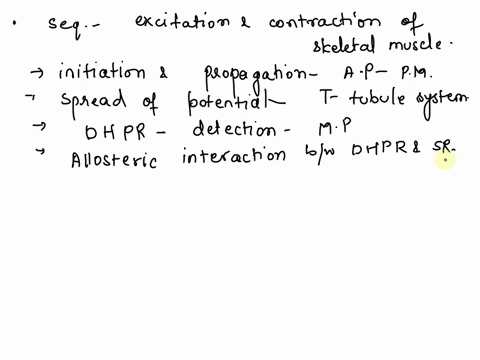 • seq.- excitation & contraction of
skeletal muscle.
→ initiation & propagation- A.P- P.M.
→ spread of potential- T-tubule system
→ DHPR - detection - M.P
→ Allosteric interaction b/w DHPR & SR.